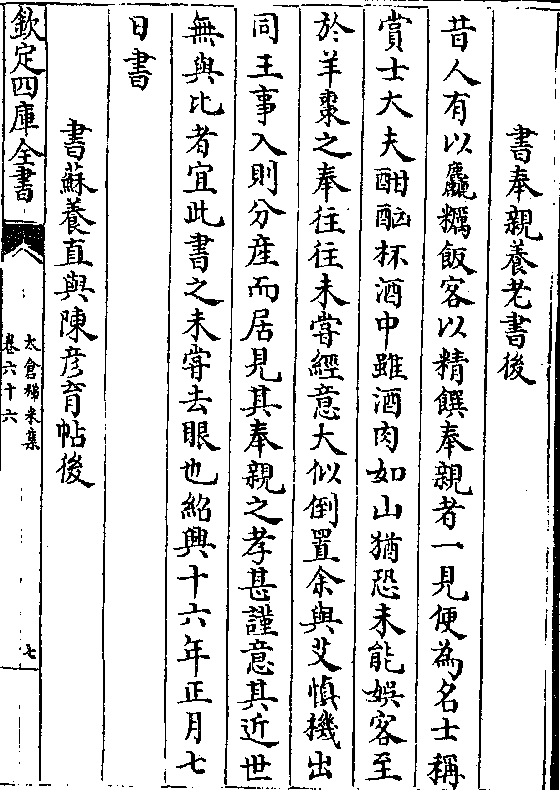 書奉親養老書後
昔人有以麤糲飯客以精饌奉親者一見便為名士稱
賞士大夫酣酗杯酒中雖酒肉如山猶恐未能娛客至
於羊棗之奉往往未嘗經意大似倒置余與艾慎機出
同王事入則分産而居見其奉親之孝甚謹意其近世
無與比者宜此書之未嘗去眼也紹興十六年正月七
日書
書蘇養直與陳彦育帖後
欽定四庫全書
太倉稊米集
卷六十六
七